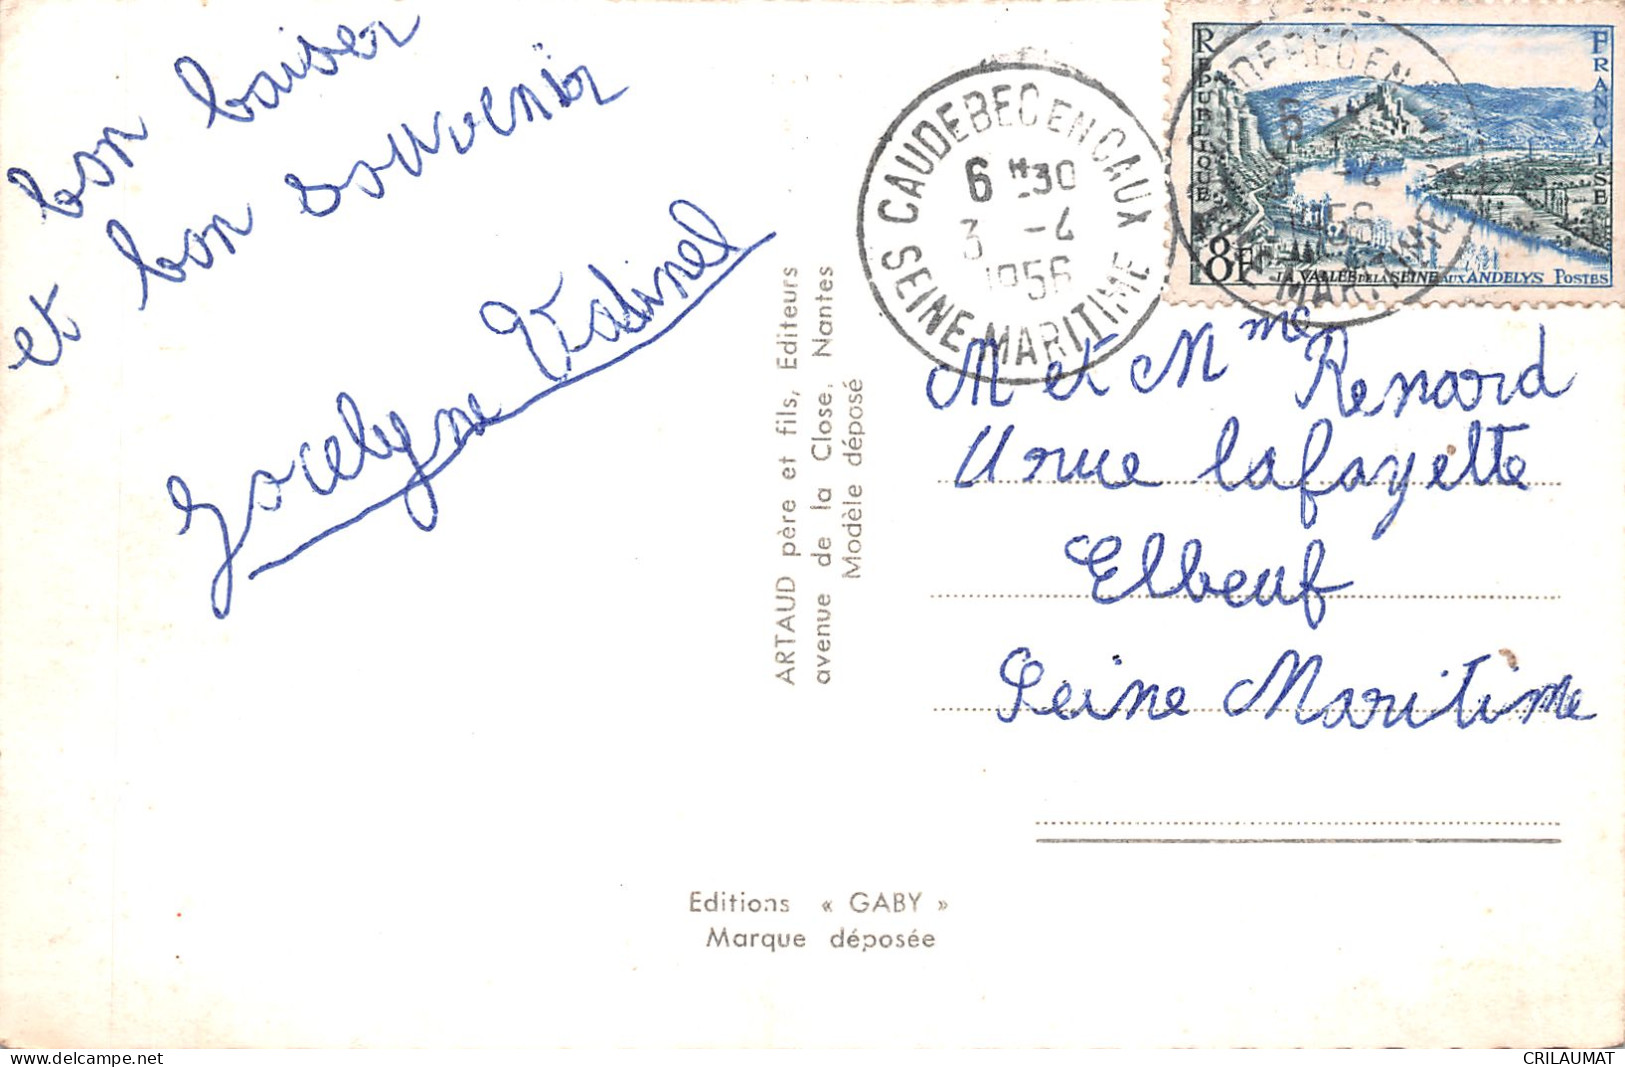 bon baiser
et bon souvenir
Jocelyne
ARTAUD père et fils, Editeurs
avenue de la Close, Nantes
Modèle déposé
CAUDEBEC EN CAUX
6 H 30
3 -4
1956
SEINE-MARITIME
REPUBLIQUE FRANÇAISE
8F
LA VALLÉE DE LA SEINE AUX ANDELYS POSTES
M et Mme Renard
rue lafayette
Elbeuf
Seine Maritime
Editions « GABY »
Marque déposée
CRILAUMAT